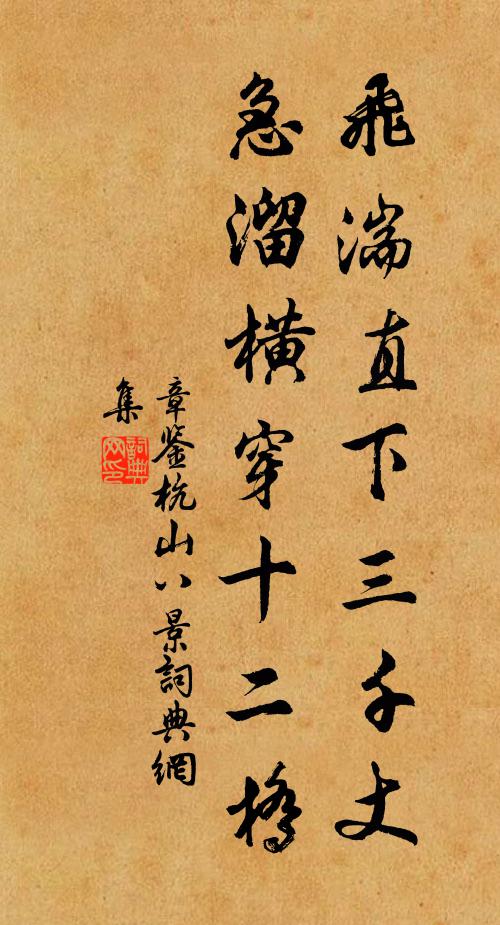 飛湍直下三千丈
急溜橫穿十二橋
章鉴杭山八景詞典網
集
詞典网印